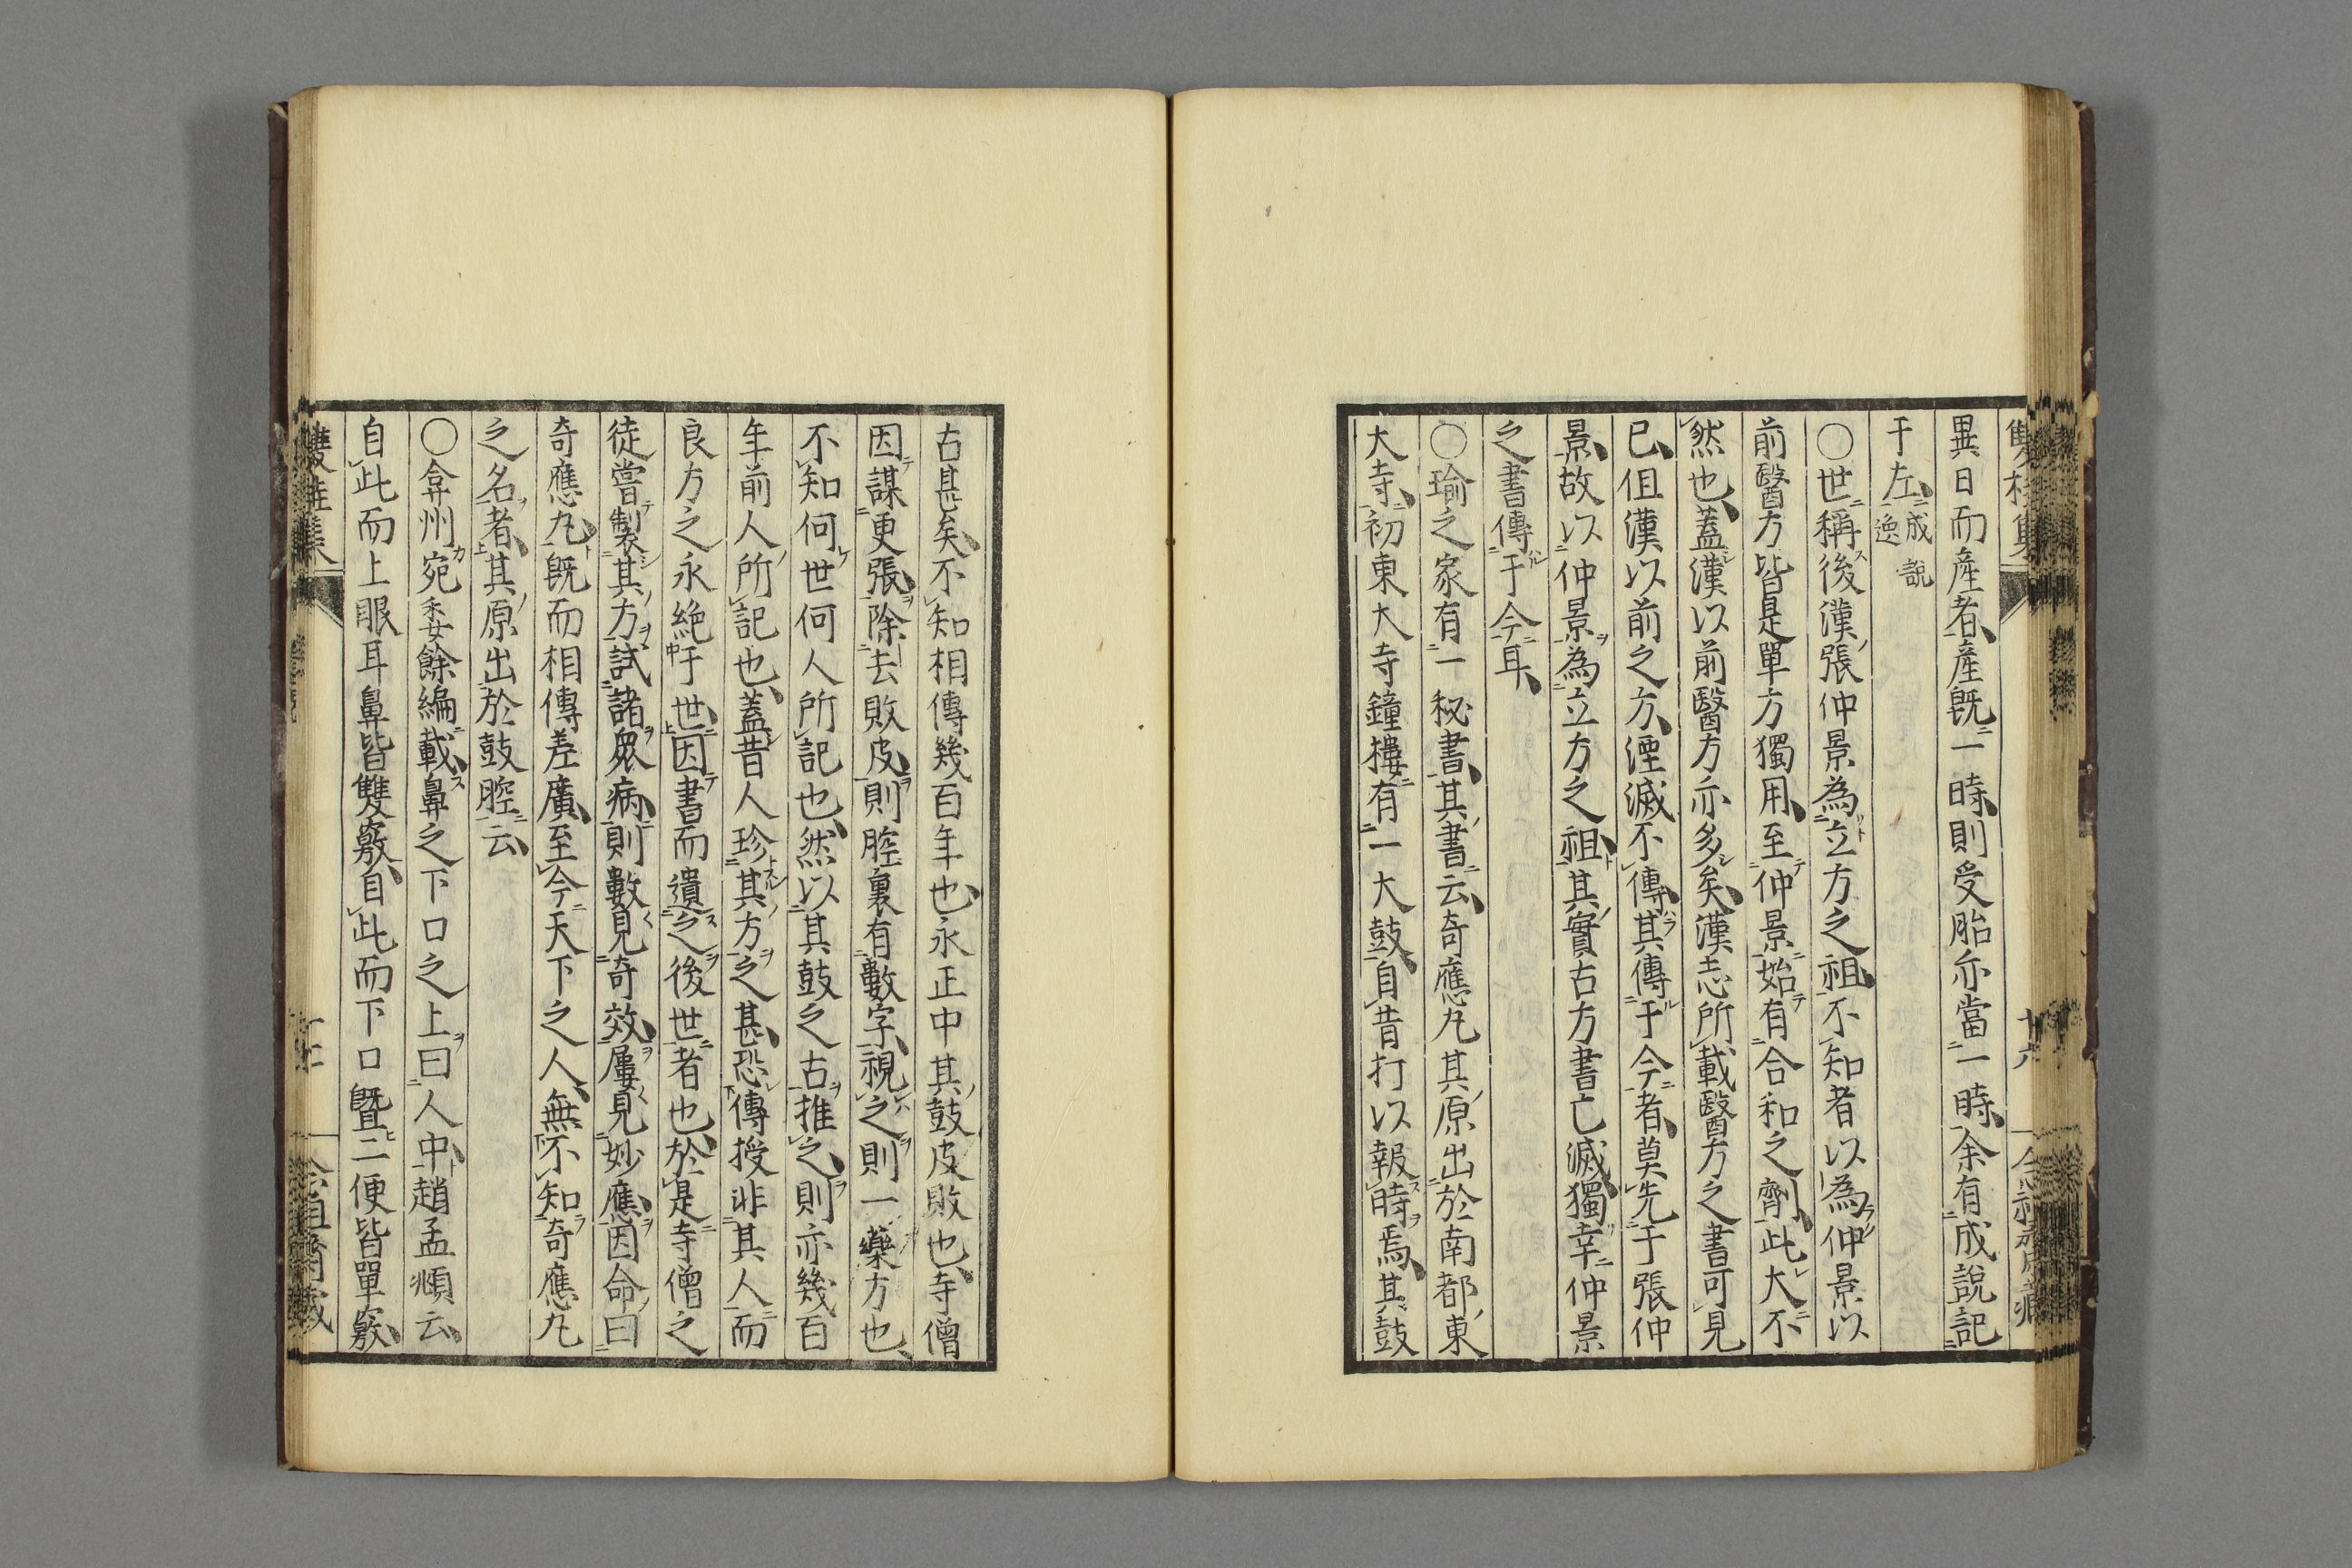 異日而産者、産既一時、則受胎亦當一時、余有成説記
于左、成説
〇世稱後漢張仲景為立方之祖、不知者以為仲景以
前醫方皆是單方獨用、至仲景始有合和之劑、此大不
然也、蓋漢以前醫方亦多矣、漢志所載醫方之書可見
已、但漢以前之方、湮滅不傳、其傳于今者、莫先于張仲
景、故以仲景為立方之祖、其實古方書亡滅、獨幸仲景
之書傳于今耳、
〇瑜之家有一秘書、其書云、奇應丸其原出於南都、東
大寺、初東大寺鐘樓有一大鼓、自昔打以報時焉、其鼓
古甚矣、不知相傳幾百年也、永正中其鼓皮敗也、寺僧
因謀更張、除去敗皮、則腔裏有數字、視之則一藥方也、
不知何世何人所記也、然以其鼓之古推之、則亦幾百
年前人所記也、蓋昔人珍其方之甚、恐傳授非其人而
良方之永絶于世、因書而遺之後世者也、於是寺僧之
徒嘗製其方、試諸衆病、則數見奇效、屢見妙應、因命曰
奇應丸、既而相傳差廣、至今天下之人、無不知奇應丸
之名者、其原出於鼓腔云、
〇弇州宛委餘編載、鼻之下口之上曰人中、趙孟頫云、
自此而上眼耳鼻皆雙竅、自此而下口暨二便皆單竅、